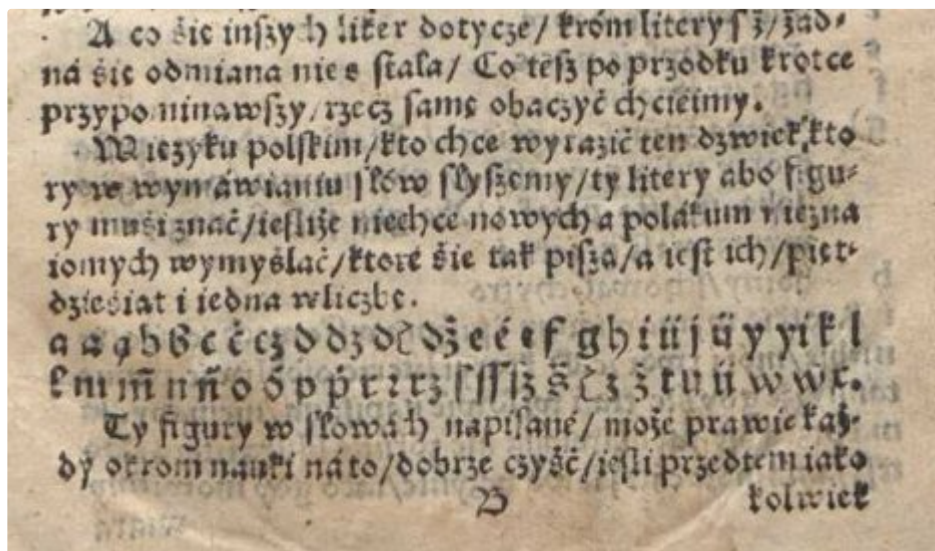 A co śię inſzych liter dotycze/ krom litery ſ ż/ żad⸗
ná śię odmiana nie s ſtala/ Co teſz po przodku krotce
przypo ninawſzy/ rzecz ſamę obaczyć chcieimy.
W ięzyku polſkim/ kto chce wyrazić ten dzwięk/ kto
ry w wymáwianiu ſłów ſłyſzemy/ ty litery abo figu⸗
ry muśi znać/ ieſliże niechce nowych a polakum niezna
iomych wymyślać/ ktoré śie tak piſzą/ a ieſt ich/ pięt⸗
dzieśiat i iedna wliczbę.
a á ą b b́ c ć cz d dz dź dż e é ę f g h i ii j ij y yi k l
ł m ḿ n ń o ó p ṕ r rz ſ ſſ ſz ś z ż ź t u ü w ẃ x.
Ty figury w ſłowach napiſané/ może prawie każ⸗
dy okrom nauki ná to/ dobrze czyść/ ieſli przedtem iako
B kolwiek